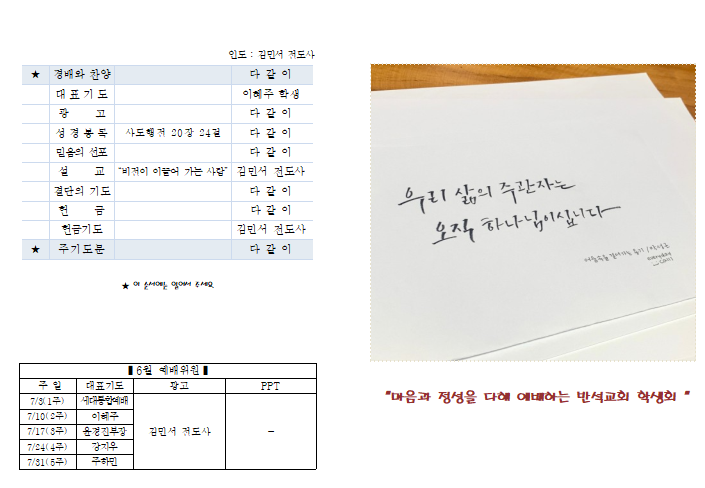 인도 : 김민서 전도사
★ 경배와 찬양 다 같 이
대 표 기 도 이혜주 학생
광 고 다 같 이
성 경 봉 독 사도행전 20장 24절 다 같 이
믿음의 선포 다 같 이
설 교 "비전이 이끌어 가는 사람" 김민서 전도사
결단의 기도 다 같 이
헌 금 다 같 이
헌금기도 김민서 전도사
★ 주기도문 다 같 이
★ 이 순서에는 일어서 주세요
▮6월 예배위원▮
주 일 대표기도 광고 PPT
7/3(1주) 세대통합예배
7/10(2주) 이혜주
7/17(3주) 윤경진부장
김민서 전도사 -
7/24(4주) 강지우
7/31(5주) 주하민
우리 삶의 주관자는
오직 하나님이십니다
"마음과 정성을 다해 예배하는 반석교회 학생회 "